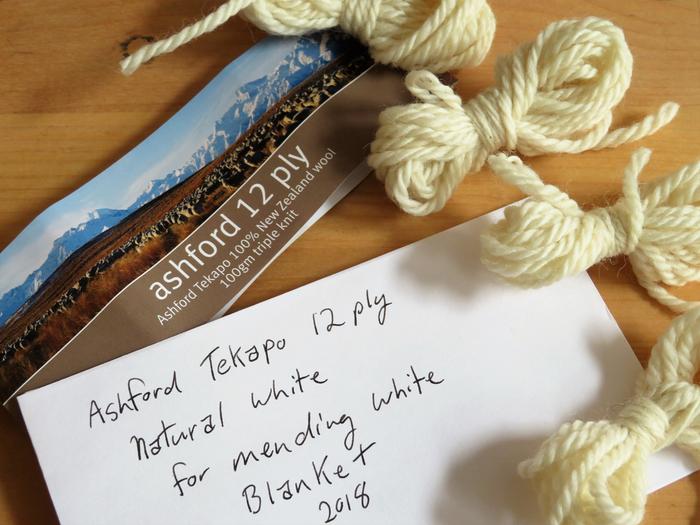 ashford 12 ply
Ashford Tekapo 100% New Zealand wool
100gm triple knit
Ashford Tekapo 12 ply
natural white
for mending white
Blanket
2018